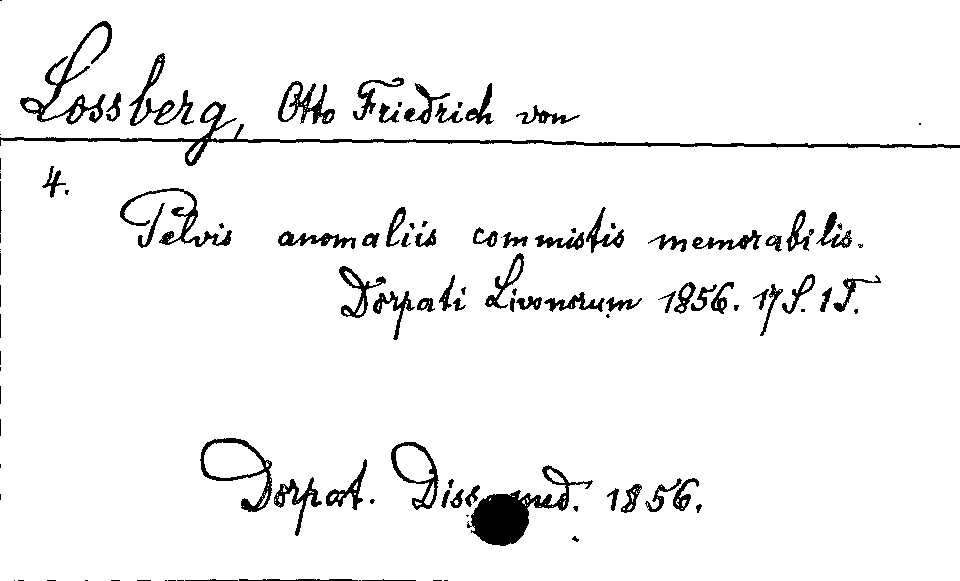 Lossberg, Otto Friedrich von
4.
Pelvis anomaliis commistis memorabilis.
Dorpati Livonorum 1856. 17 S. 1 T.
Dorpat. Diss. med. 1856.